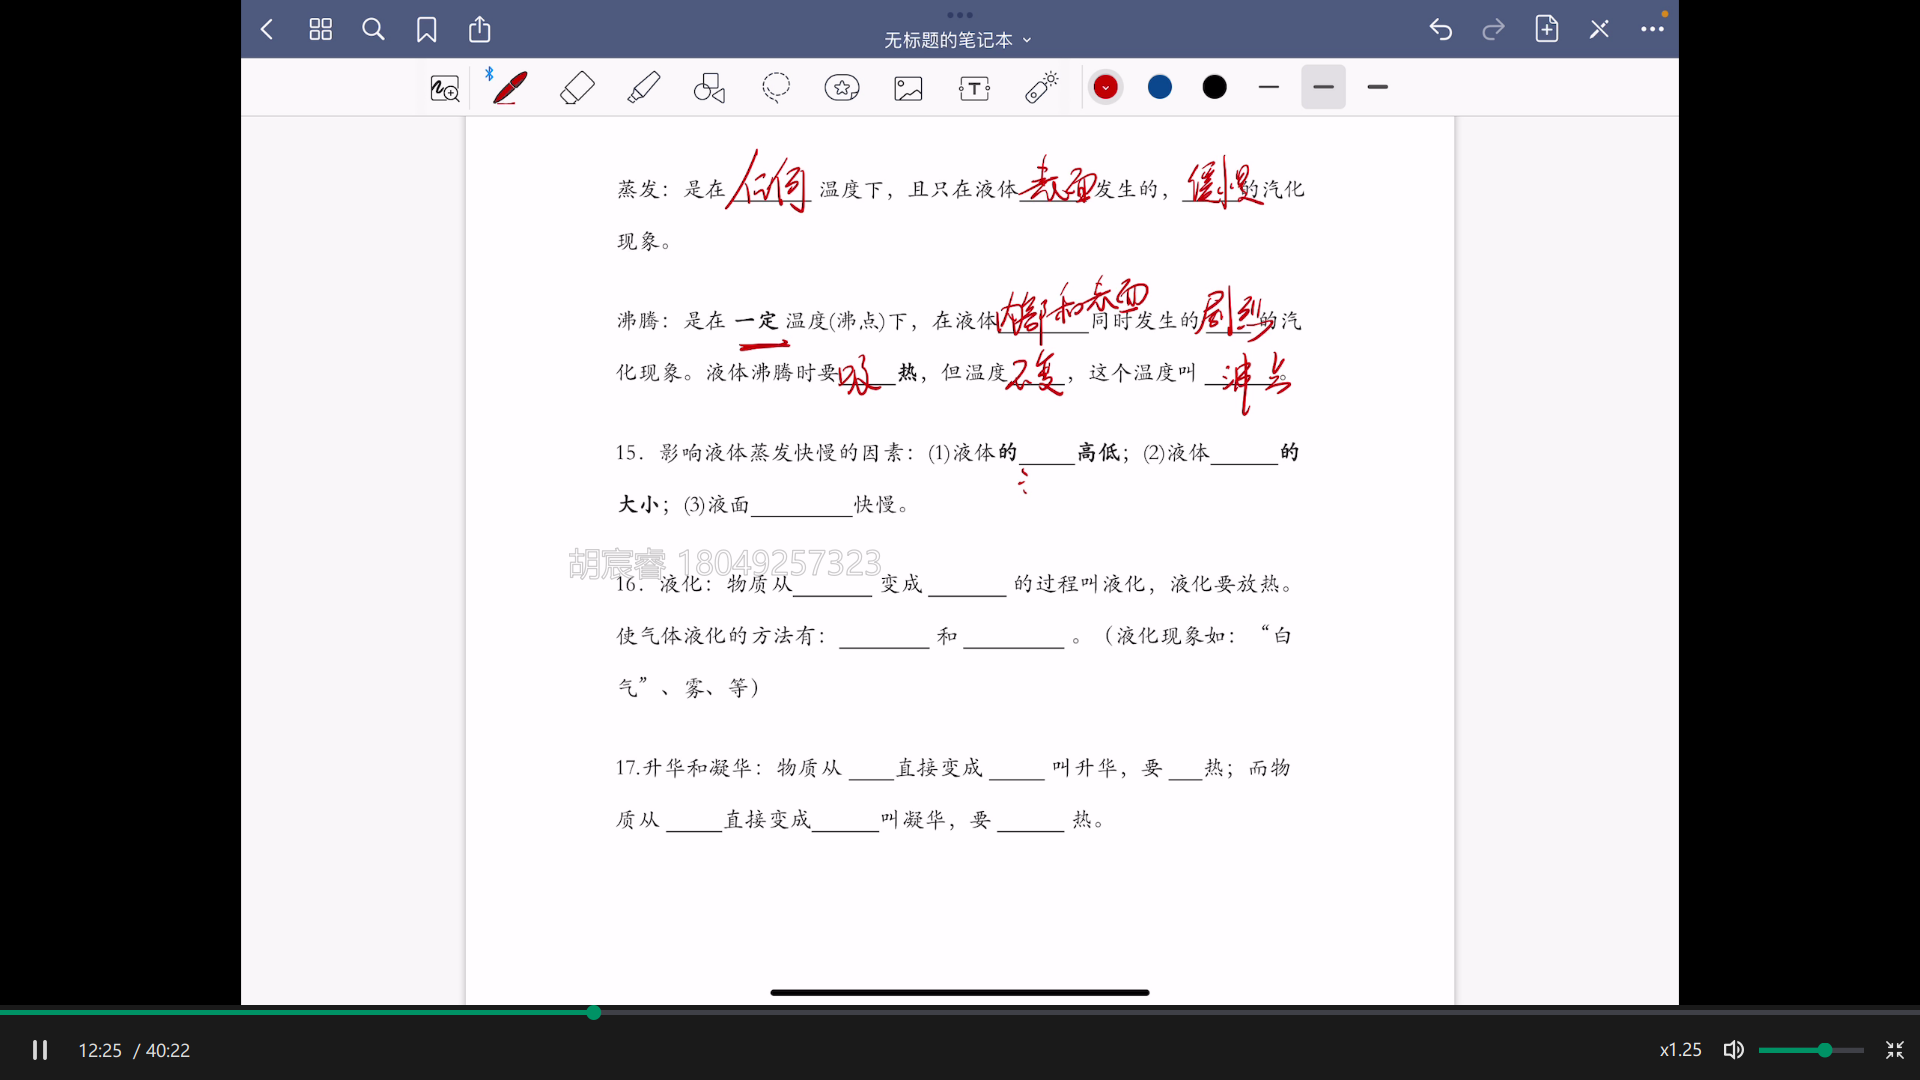 无标题的笔记本
蒸发：是在 任何 温度下，且只在液体表面发生的，缓慢的汽化
现象。
沸腾：是在 一定 温度(沸点)下，在液体内部和表面同时发生的剧烈的汽
化现象。液体沸腾时要吸热，但温度不变，这个温度叫 沸点。
15．影响液体蒸发快慢的因素：(1)液体的_____高低；(2)液体______的
大小；(3)液面_________快慢。
胡宸睿 18049257323
16．液化：物质从_______ 变成 _______ 的过程叫液化，液化要放热。
使气体液化的方法有：________ 和 _________ 。（液化现象如：“白
气”、雾、等）
17.升华和凝华：物质从 ____直接变成 _____ 叫升华，要 ___热；而物
质从 _____直接变成______叫凝华，要 ______ 热。
12:25 / 40:22
x1.25